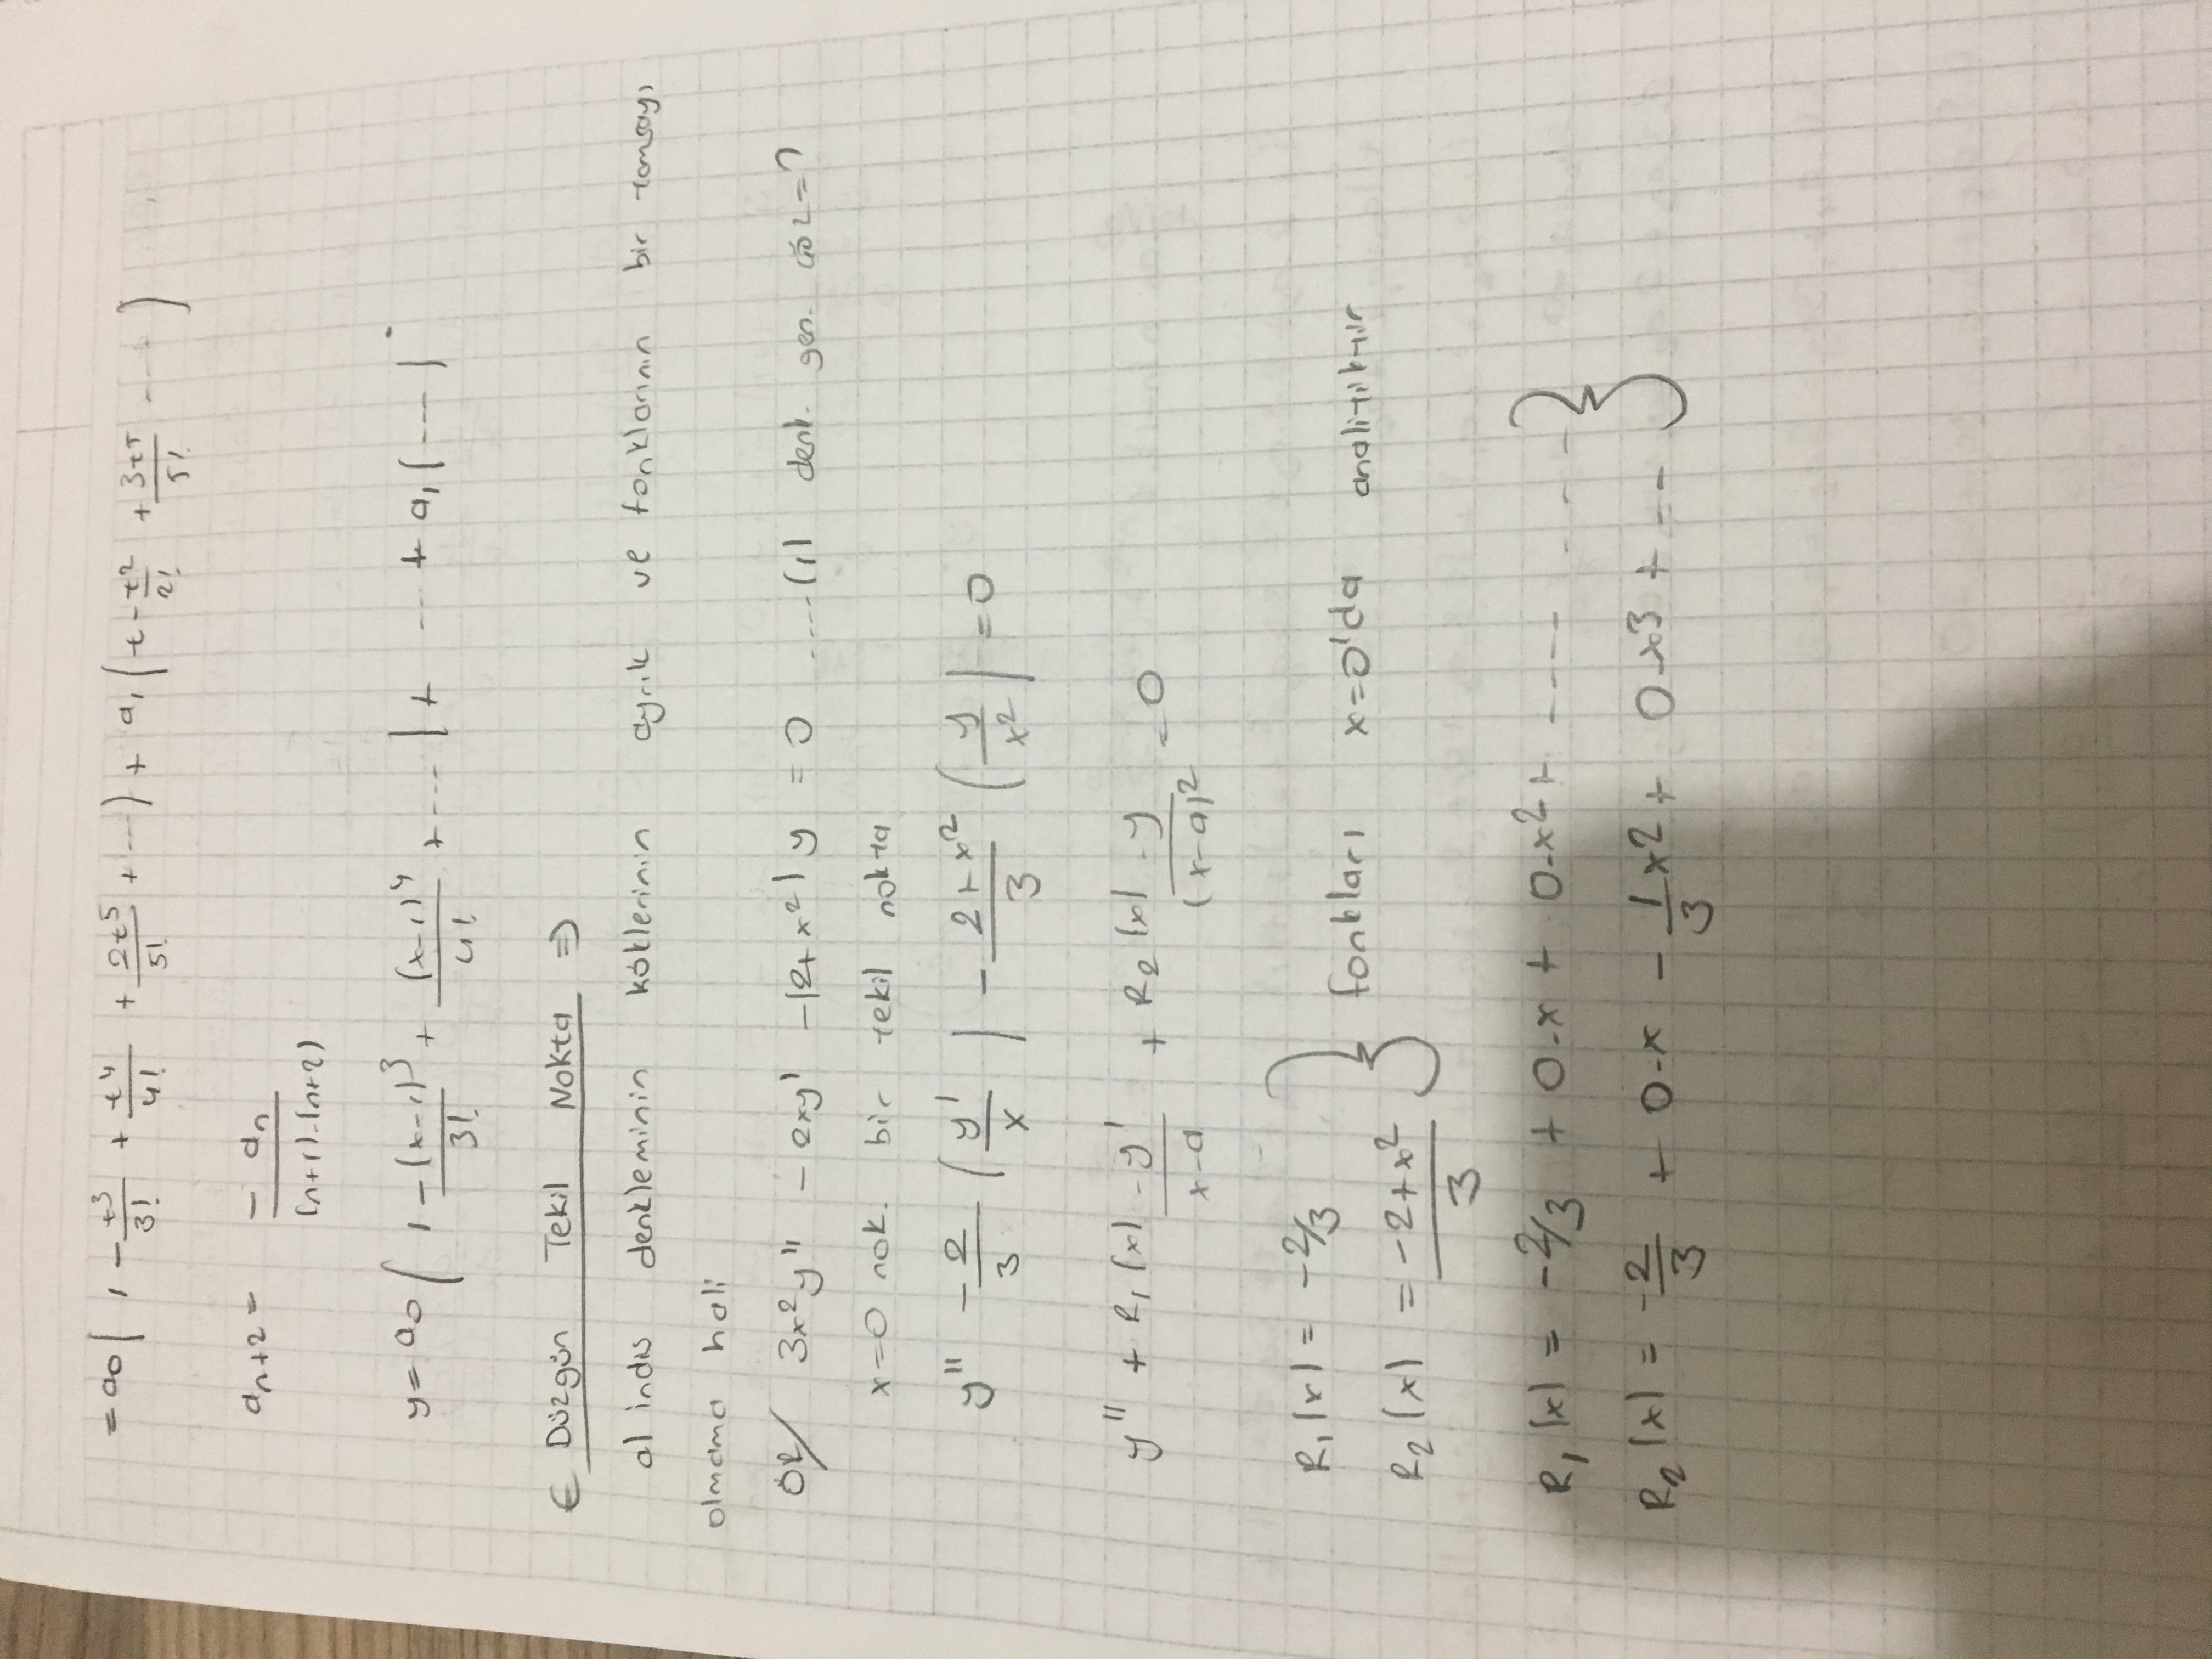 = a0 ( 1 - t3/3! + t4/4! + 2t5/5! + ...) + a1 (t - t2/2! + 3t5/5! ... )
an+2 = - an / (n+1).(n+2)
y = a0 ( 1 - (x-1)3/3! + (x-1)4/4! + .... ) + ... + a1 (---)
€ Düzgün Tekil Nokta ⇒
a) indis denkleminin köklerinin ayrık ve fonklarının bir tamsayı
olmama hali
ÖR/ 3x2y'' - 2xy' - (2+x2) y = 0 ....(1) denk. gen. çöz=?
x=0 nok. bir tekil nokta
y'' - 2/3 (y'/x) - 2+x2/3 (y/x2) = 0
y'' + R1(x) . y'/x-a + R2(x) . y/(x-a)2 = 0
R1(x) = -2/3
R2(x) = -2+x2/3 } fonkları x=0'da analitiktir
R1(x) = -2/3 + 0.x + 0.x2 + ---- ---
R2(x) = -2/3 + 0.x - 1/3 x2 + 0.x3 + -- }